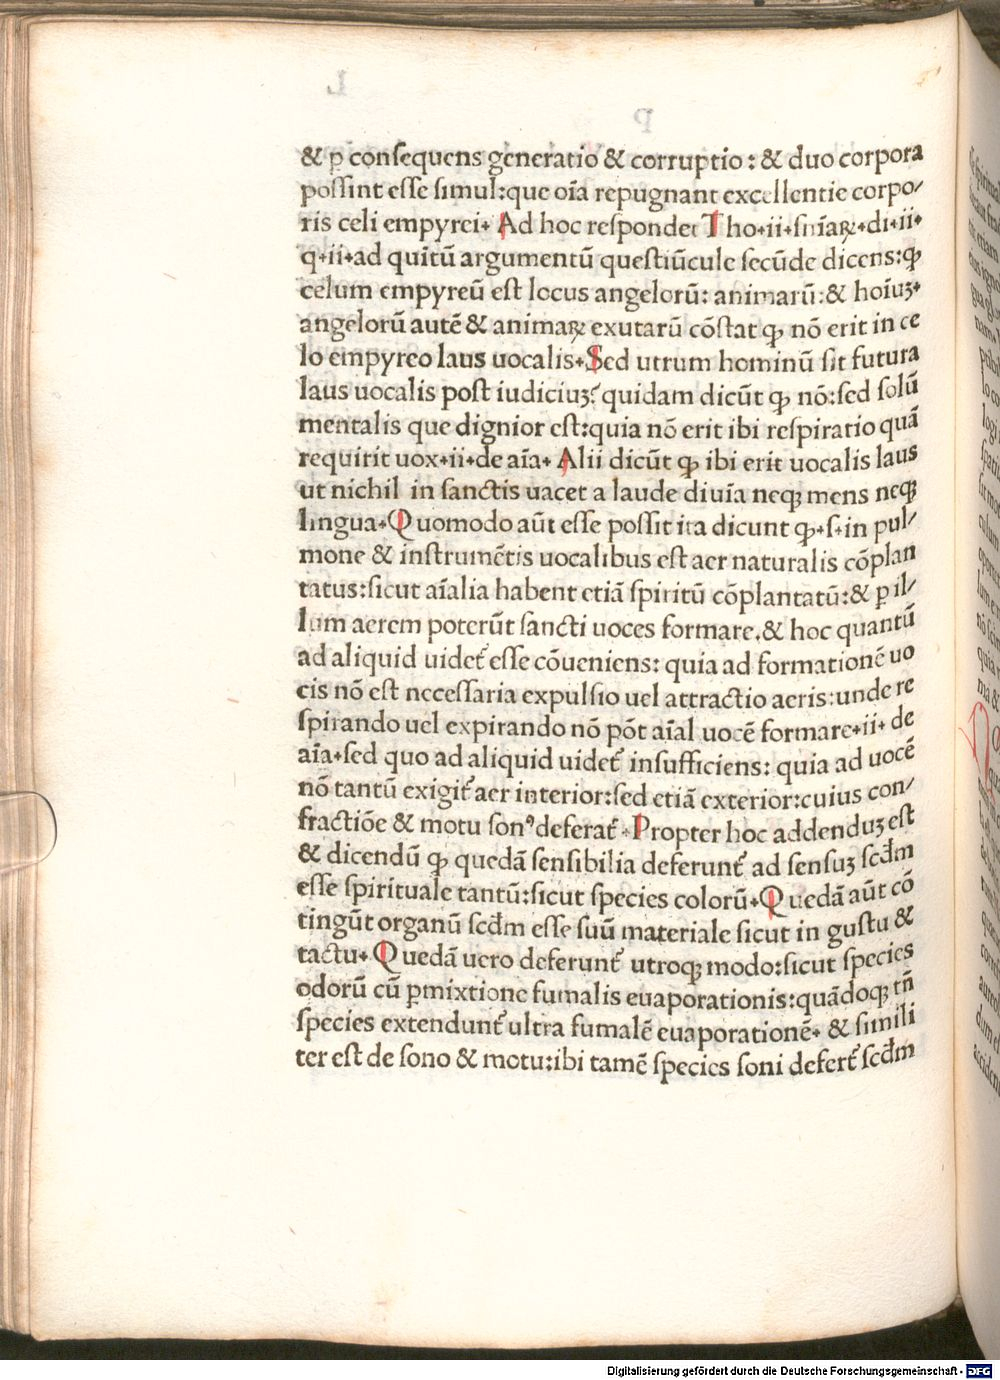 & ꝑ consequens generatio & corruptio : & duo corpora
possint esse simul:que oīa repugnant excellentie corpo/
ris celi empyrei. Ad hoc respondet Tho.ii.sniaꝝ.di.ii.
q.ii.ad quītū argumentū questiūcule secūde dicens:ꝙ
celum empyreū est locus angelorū: animarū:& hoīuꝫ.
angelorū autē & animaꝝ exutarū cōstat ꝙ nō erit in ce
lo empyreo laus uocalis.Sed utrum hominū sit futura
laus uocalis post iudiciuꝫ? quidam dicūt ꝙ nō:sed solū
mentalis que dignior est:quia nō erit ibi respiratio quā
requirit uox.ii.de aīa. Alii dicūt ꝙ ibi erit uocalis laus
ut nichil in sanctis uacet a laude diuīa neqꝫ mens neqꝫ
lingua.Quomodo aūt esse possit ita dicunt ꝙ.s.in pul/
mone & instrumētis uocalibus est aer naturalis cōplan
tatus:sicut aīalia habent etiā spiritū cōplantatū:& ꝑ il/
lum aerem poterūt sancti uoces formare.& hoc quantū
ad aliquid uidet᷑ esse cōueniens: quia ad formationē uo
cis nō est necessaria expulsio uel attractio aeris:unde re
spirando uel expirando nō pōt aīal uocē formare.ii. de
aīa.sed quo ad aliquid uidet᷑ insufficiens: quia ad uocē
nō tantū exigit᷑ aer interior:sed etiā exterior:cuius con/
fractiōe & motu sonꝰ deferat᷑ .Propter hoc addenduꝫ est
& dicendū ꝙ quedā sensibilia deferunt᷑ ad sensuꝫ scd̄m
esse spirituale tantū:sicut species colorū.Quedā aūt cō
tingūt organū scd̄m esse suū materiale sicut in gustu &
tactu. Quedā uero deferunt᷑ utroqꝫ modo:sicut species
odorū cū ꝑmixtione fumalis euaporationis:quādoqꝫ tn̄
species extendunt᷑ ultra fumalē euaporationē. & simili
ter est de sono & motu:ibi tamē species soni defert᷑ scd̄m
Digitalisierung gefördert durch die Deutsche Forschungsgemeinschaft - DFG